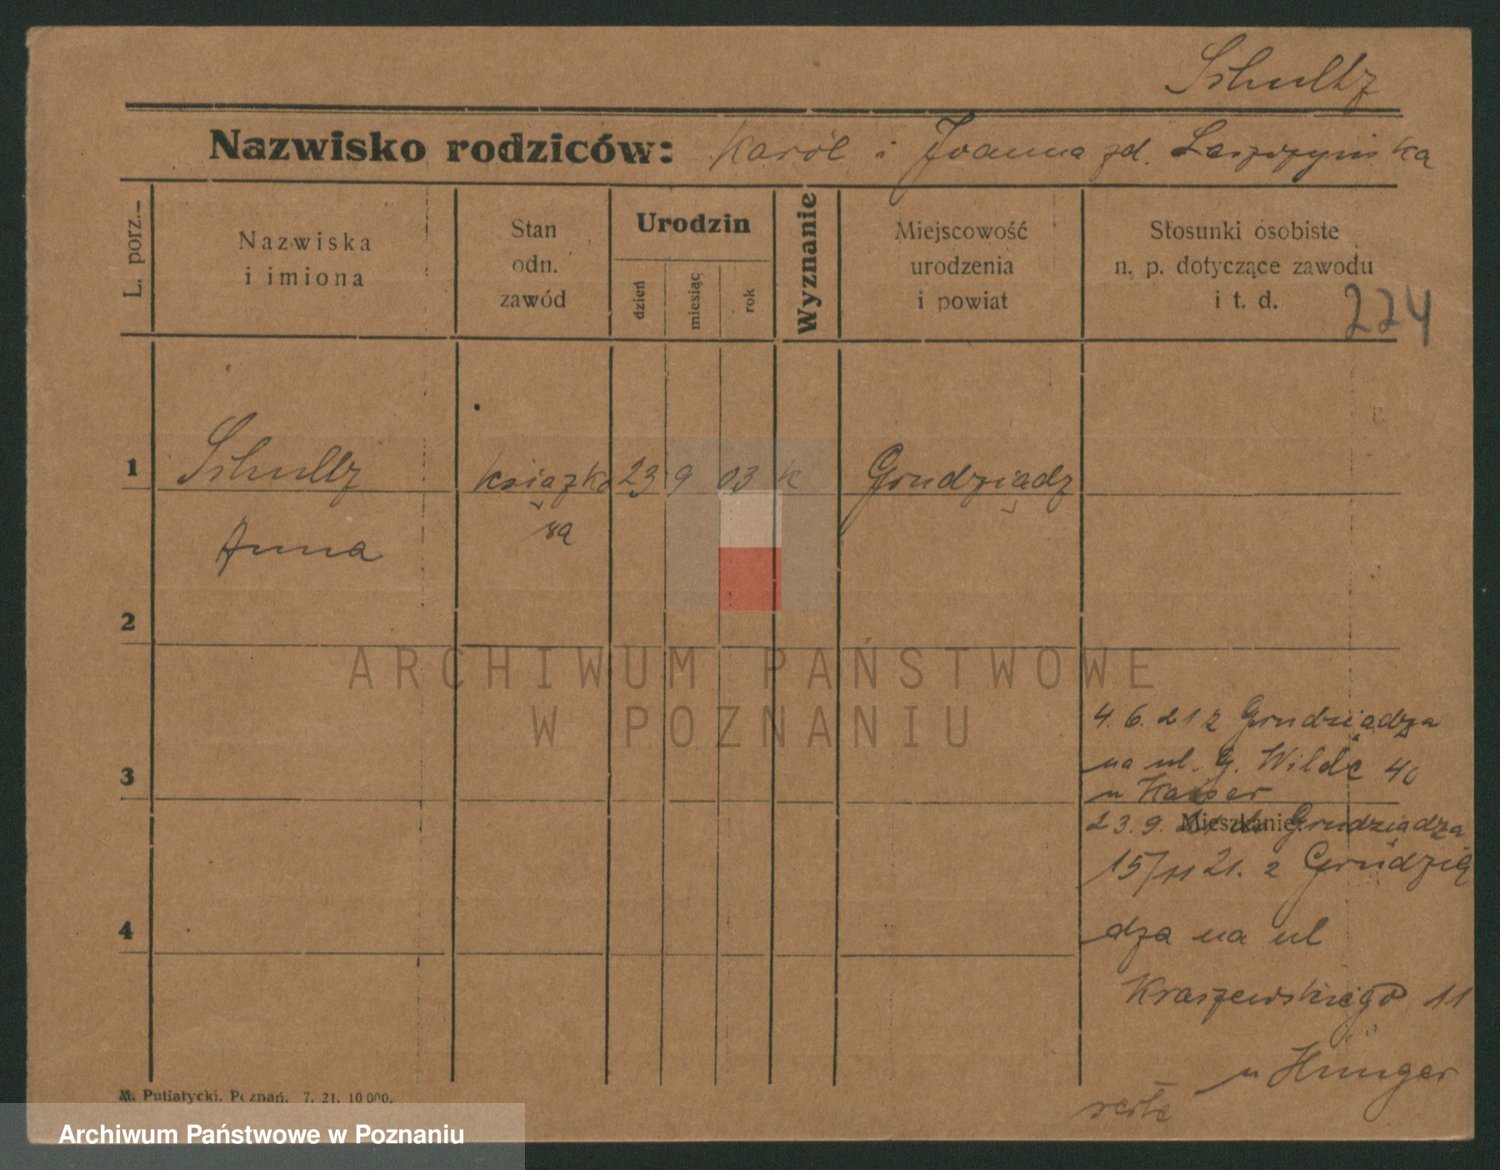 Schultz
Nazwisko rodziców: Karól i Joanna zd. Laszczyńska
L. porz.
Nazwiska
i imiona
Stan
odn.
zawód
Urodzin
dzień
miesiąc
rok
Wyznanie
Miejscowość
urodzenia
i powiat
Stosunki osobiste
n. p. dotyczące zawodu
i t. d.
224
1
Schultz
książko
23 9 03 k
Grudziądz
Anna
2
ARCHIWUM PAŃSTWOWE
W POZNANIU
4. 6. 21 z Grudziądza
na ul. G. Wilda 40
3
u Kaiser
23. 9. Grudziądza
Mieszkanie:
15/11 21. z Grudzią
4
dza na ul
Kraszewskiego 11
u Hunger
M. Putiatycki. Poznań. 7. 21. 10 000.
Archiwum Państwowe w Poznaniu